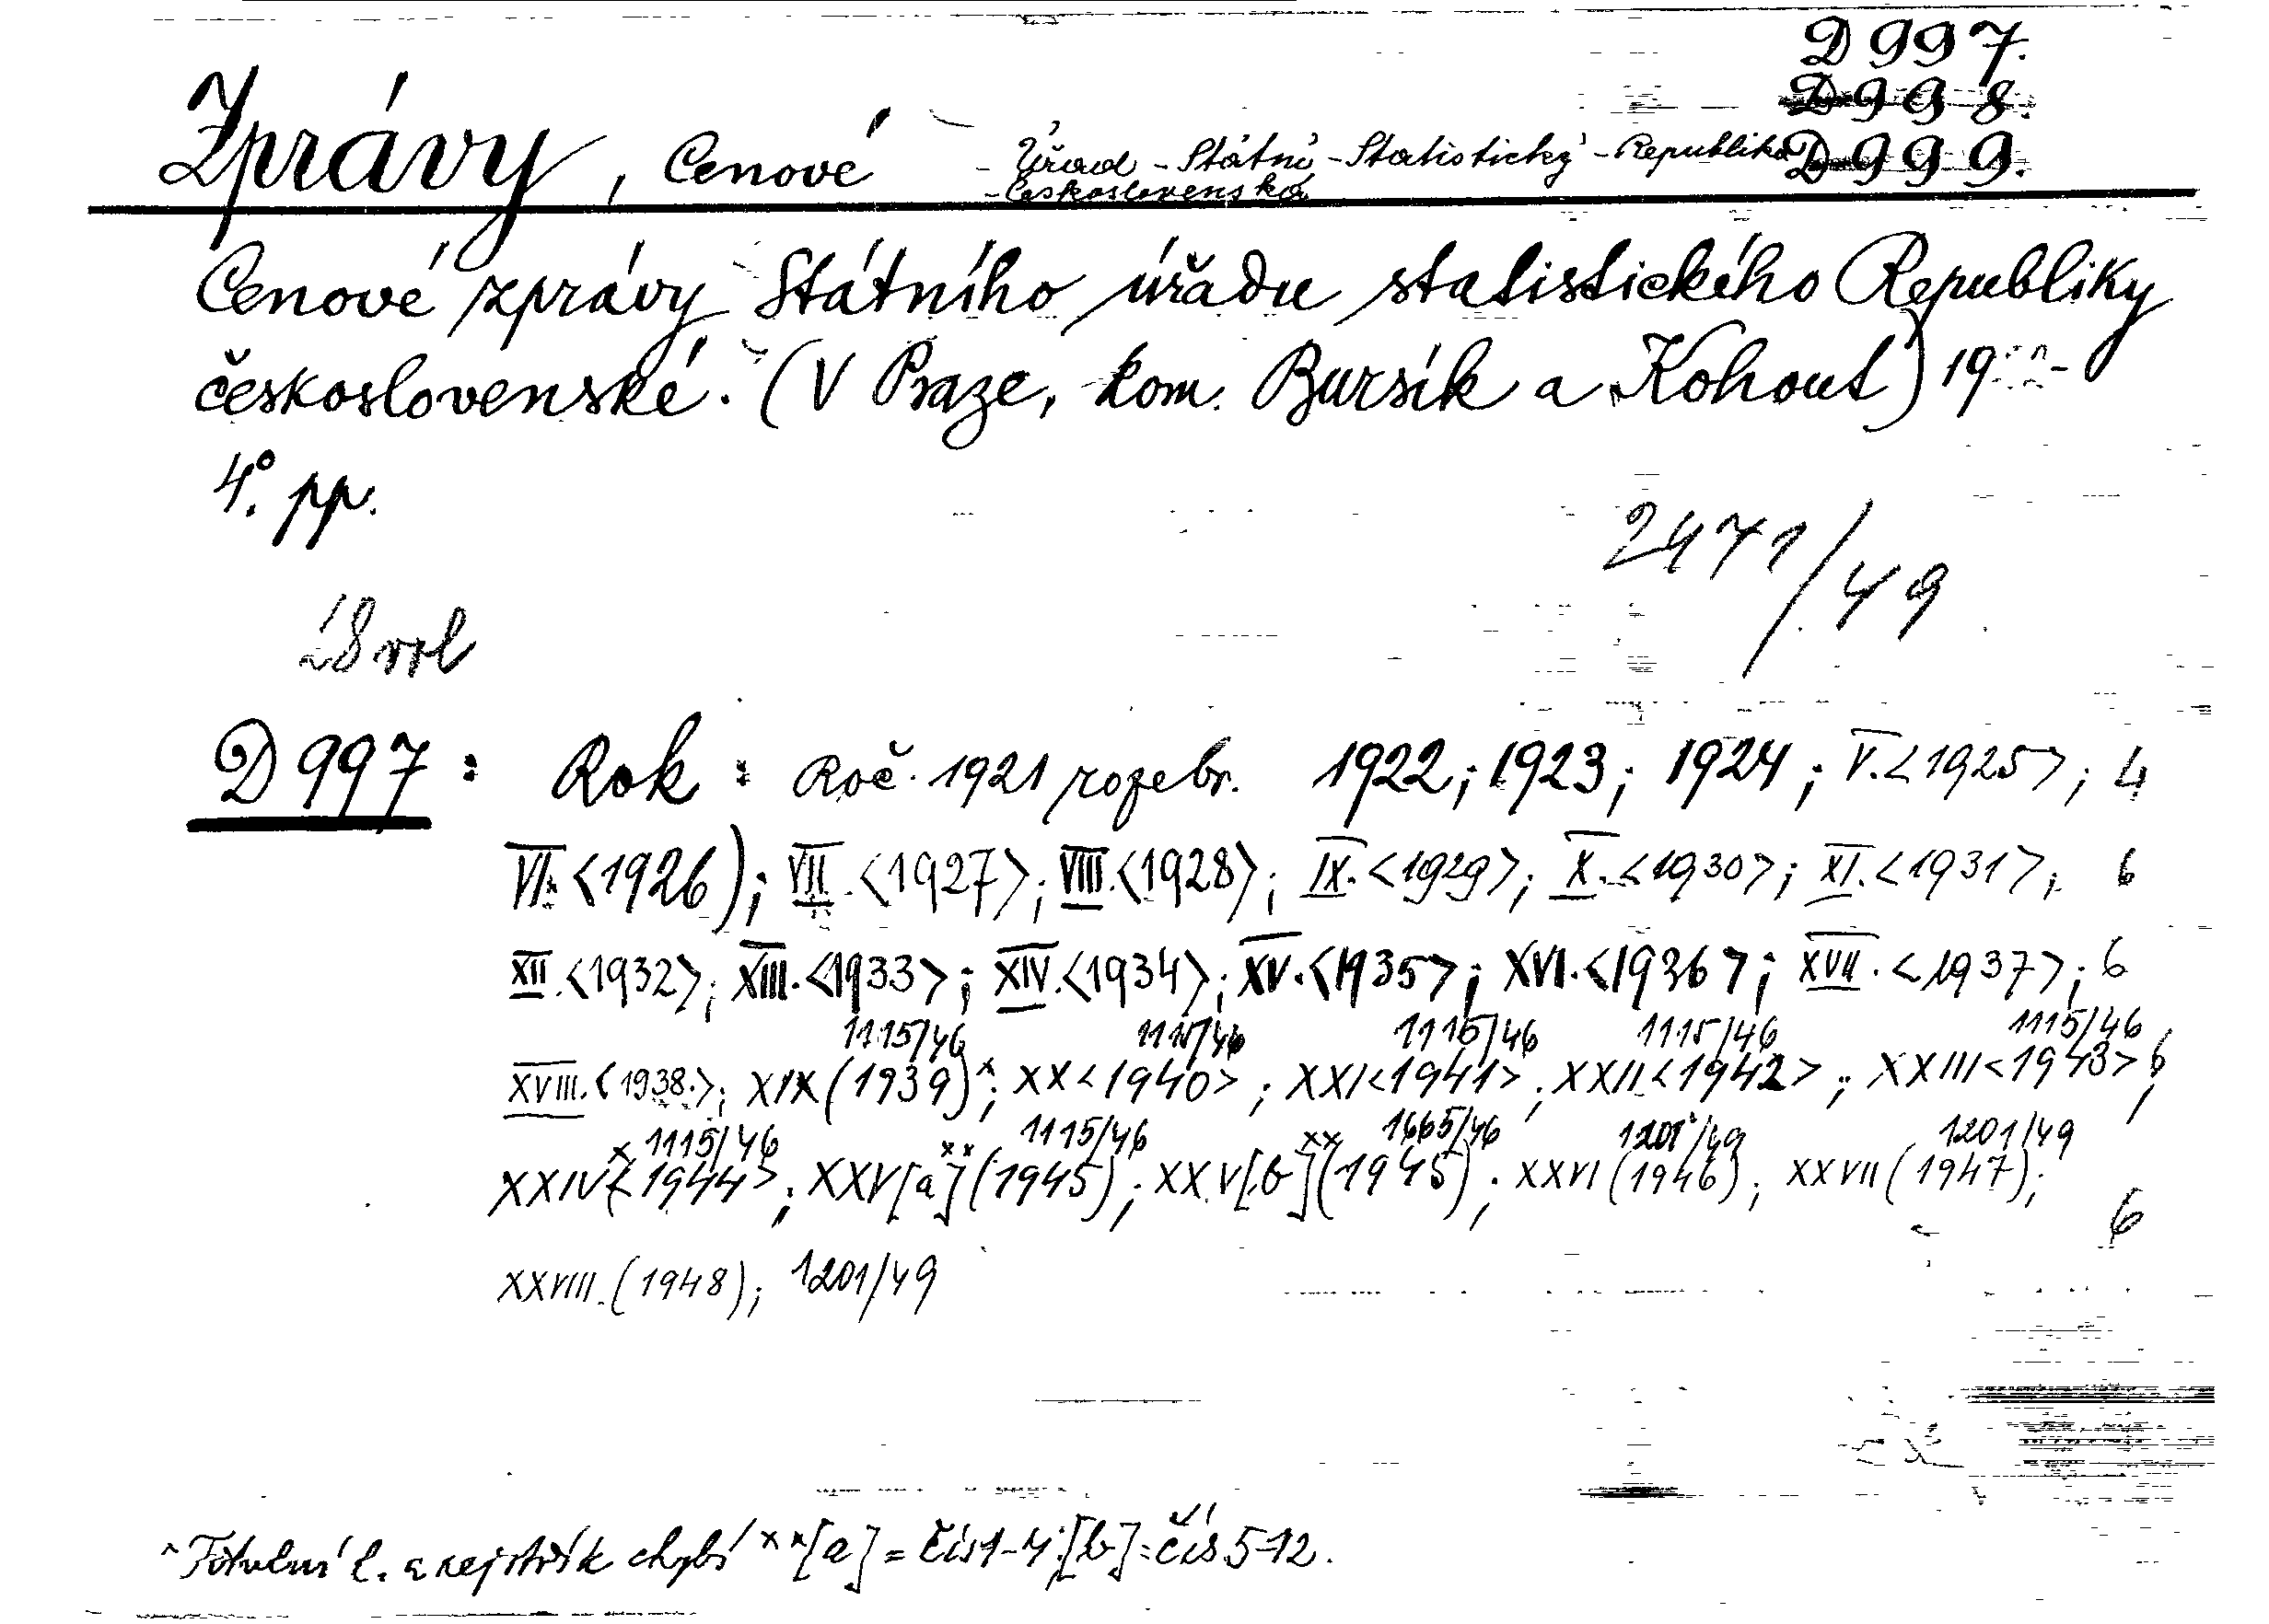 D 997.
D 998.
D 999.
Zprávy, Cenové - Úřad - Státní - Statistický - Republika
- Československá
Cenové zprávy Státního úřadu statistického Republiky
československé. (V Praze, kom. Bursík a Kohout) 19 -
4°. pp.
2471/49
28 vol
D 997 : Rok : Roč. 1921 rozebr. 1922; 1923; 1924; V.<1925>; 4
VI.<1926); VII.<1927>; VIII.<1928>; IX.<1929>; X.<1930>; XI.<1931>; 6
XII.<1932>; XIII.<1933>; XIV.<1934>; XV.<1935>; XVI.<1936>; XVII.<1937>; 6
1115/46 1115/46 1115/46 1115/46 1115/46
XVIII.<1938.>; XIX(1939)x; XX<1940>; XXI<1941>; XXII<1942>; XXIII<1943>; 6
x 1115/46 1115/46 1665/46 1201/49 1201/49
XXIV<1944>; XXV[a]xx(1945); XXV[b]xx(1945); XXVI(1946); XXVII(1947);
6
XXVIII.(1948); 1201/49
x Titulní l. a rejstřík chybí xx[a] = čís 1-4; [b] = čís. 5-12.